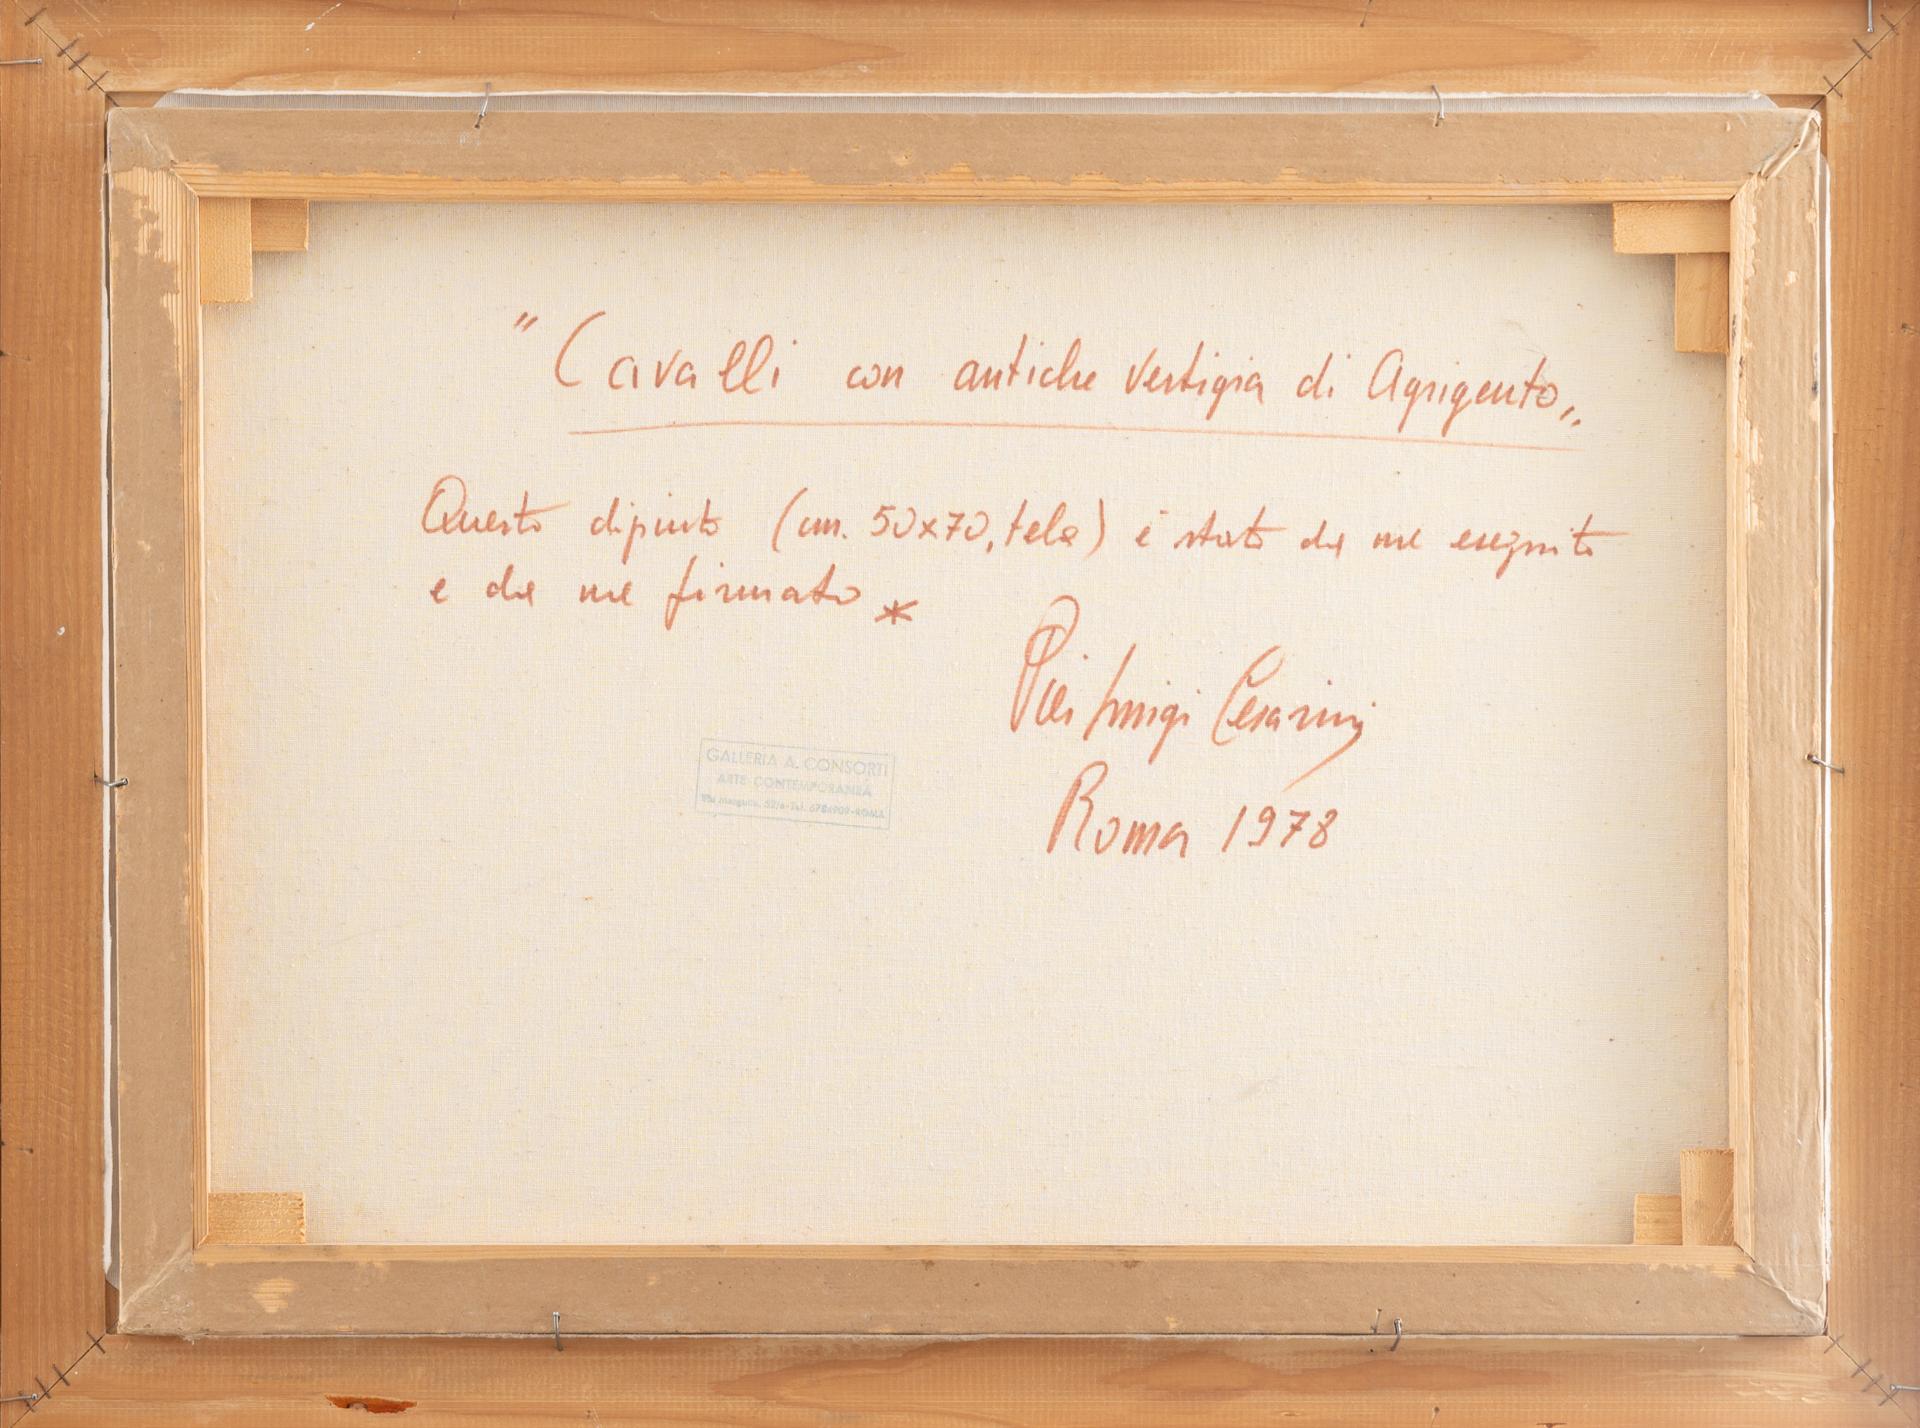 "Cavalli con antiche vestigia di Agrigento"
Questo dipinto (cm. 50x70, tela) è stato da me eseguito
e da me firmato *
Pier Luigi Cesarini
Roma 1978
GALLERIA A. CONSORTI
ARTE CONTEMPORANEA
Via Margutta, 52/a - Tel. 6784909 - ROMA